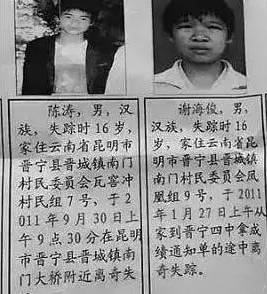 陈涛，男，汉
族，失踪时16岁，
家住云南省昆明市
晋宁县晋城镇南门
村民委员会瓦窑冲
村民组7号，于2
011年9月30日上
午9点30分在昆明
市晋宁县晋城镇南
门大桥附近离奇失
谢海俊，男，
汉族，失踪时16
岁，家住云南省昆明
市晋宁县晋城镇南
门村民委员会凤
凰组9号，于2011
年1月27日上午从
家到晋宁四中拿成
绩通知单的途中离
奇失踪。